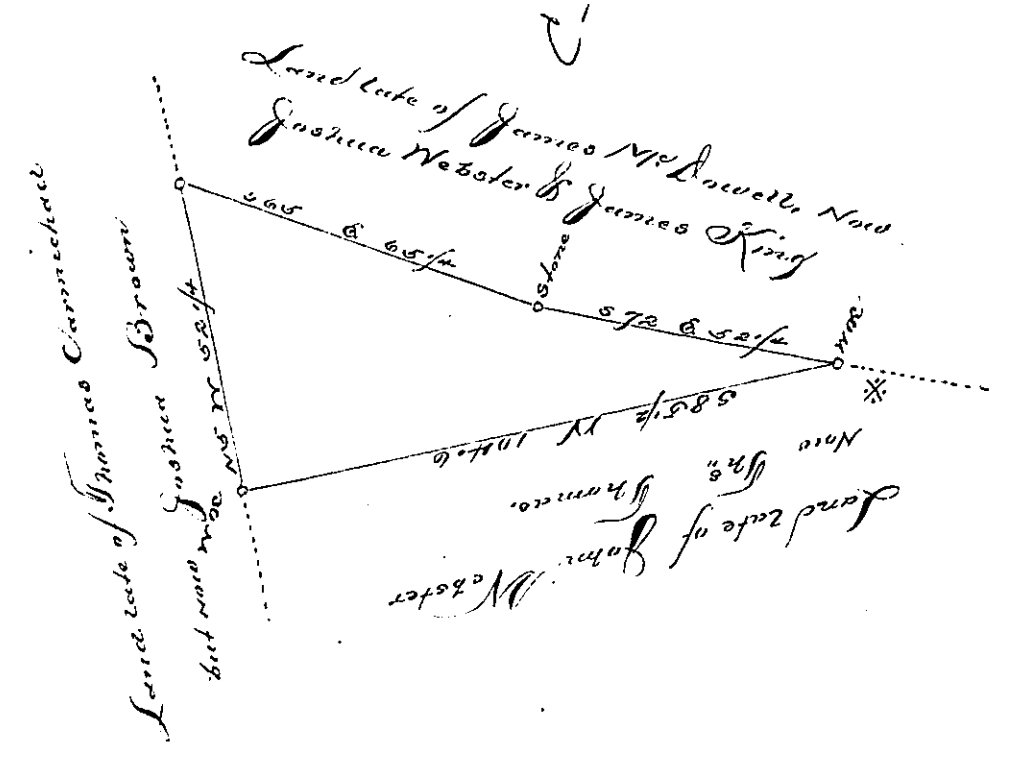 Land late of James McDowell, Now
Joshua Webster & James King
S 65 E 65 1/4
Stone
S 72 E 52 1/4
※
S 85 1/2 W 104.6
Land late of John Webster
Now Thos Thomas.
N 5 W 52 1/4
Land late of Thomas Carmichael
but Now Joshua Brown